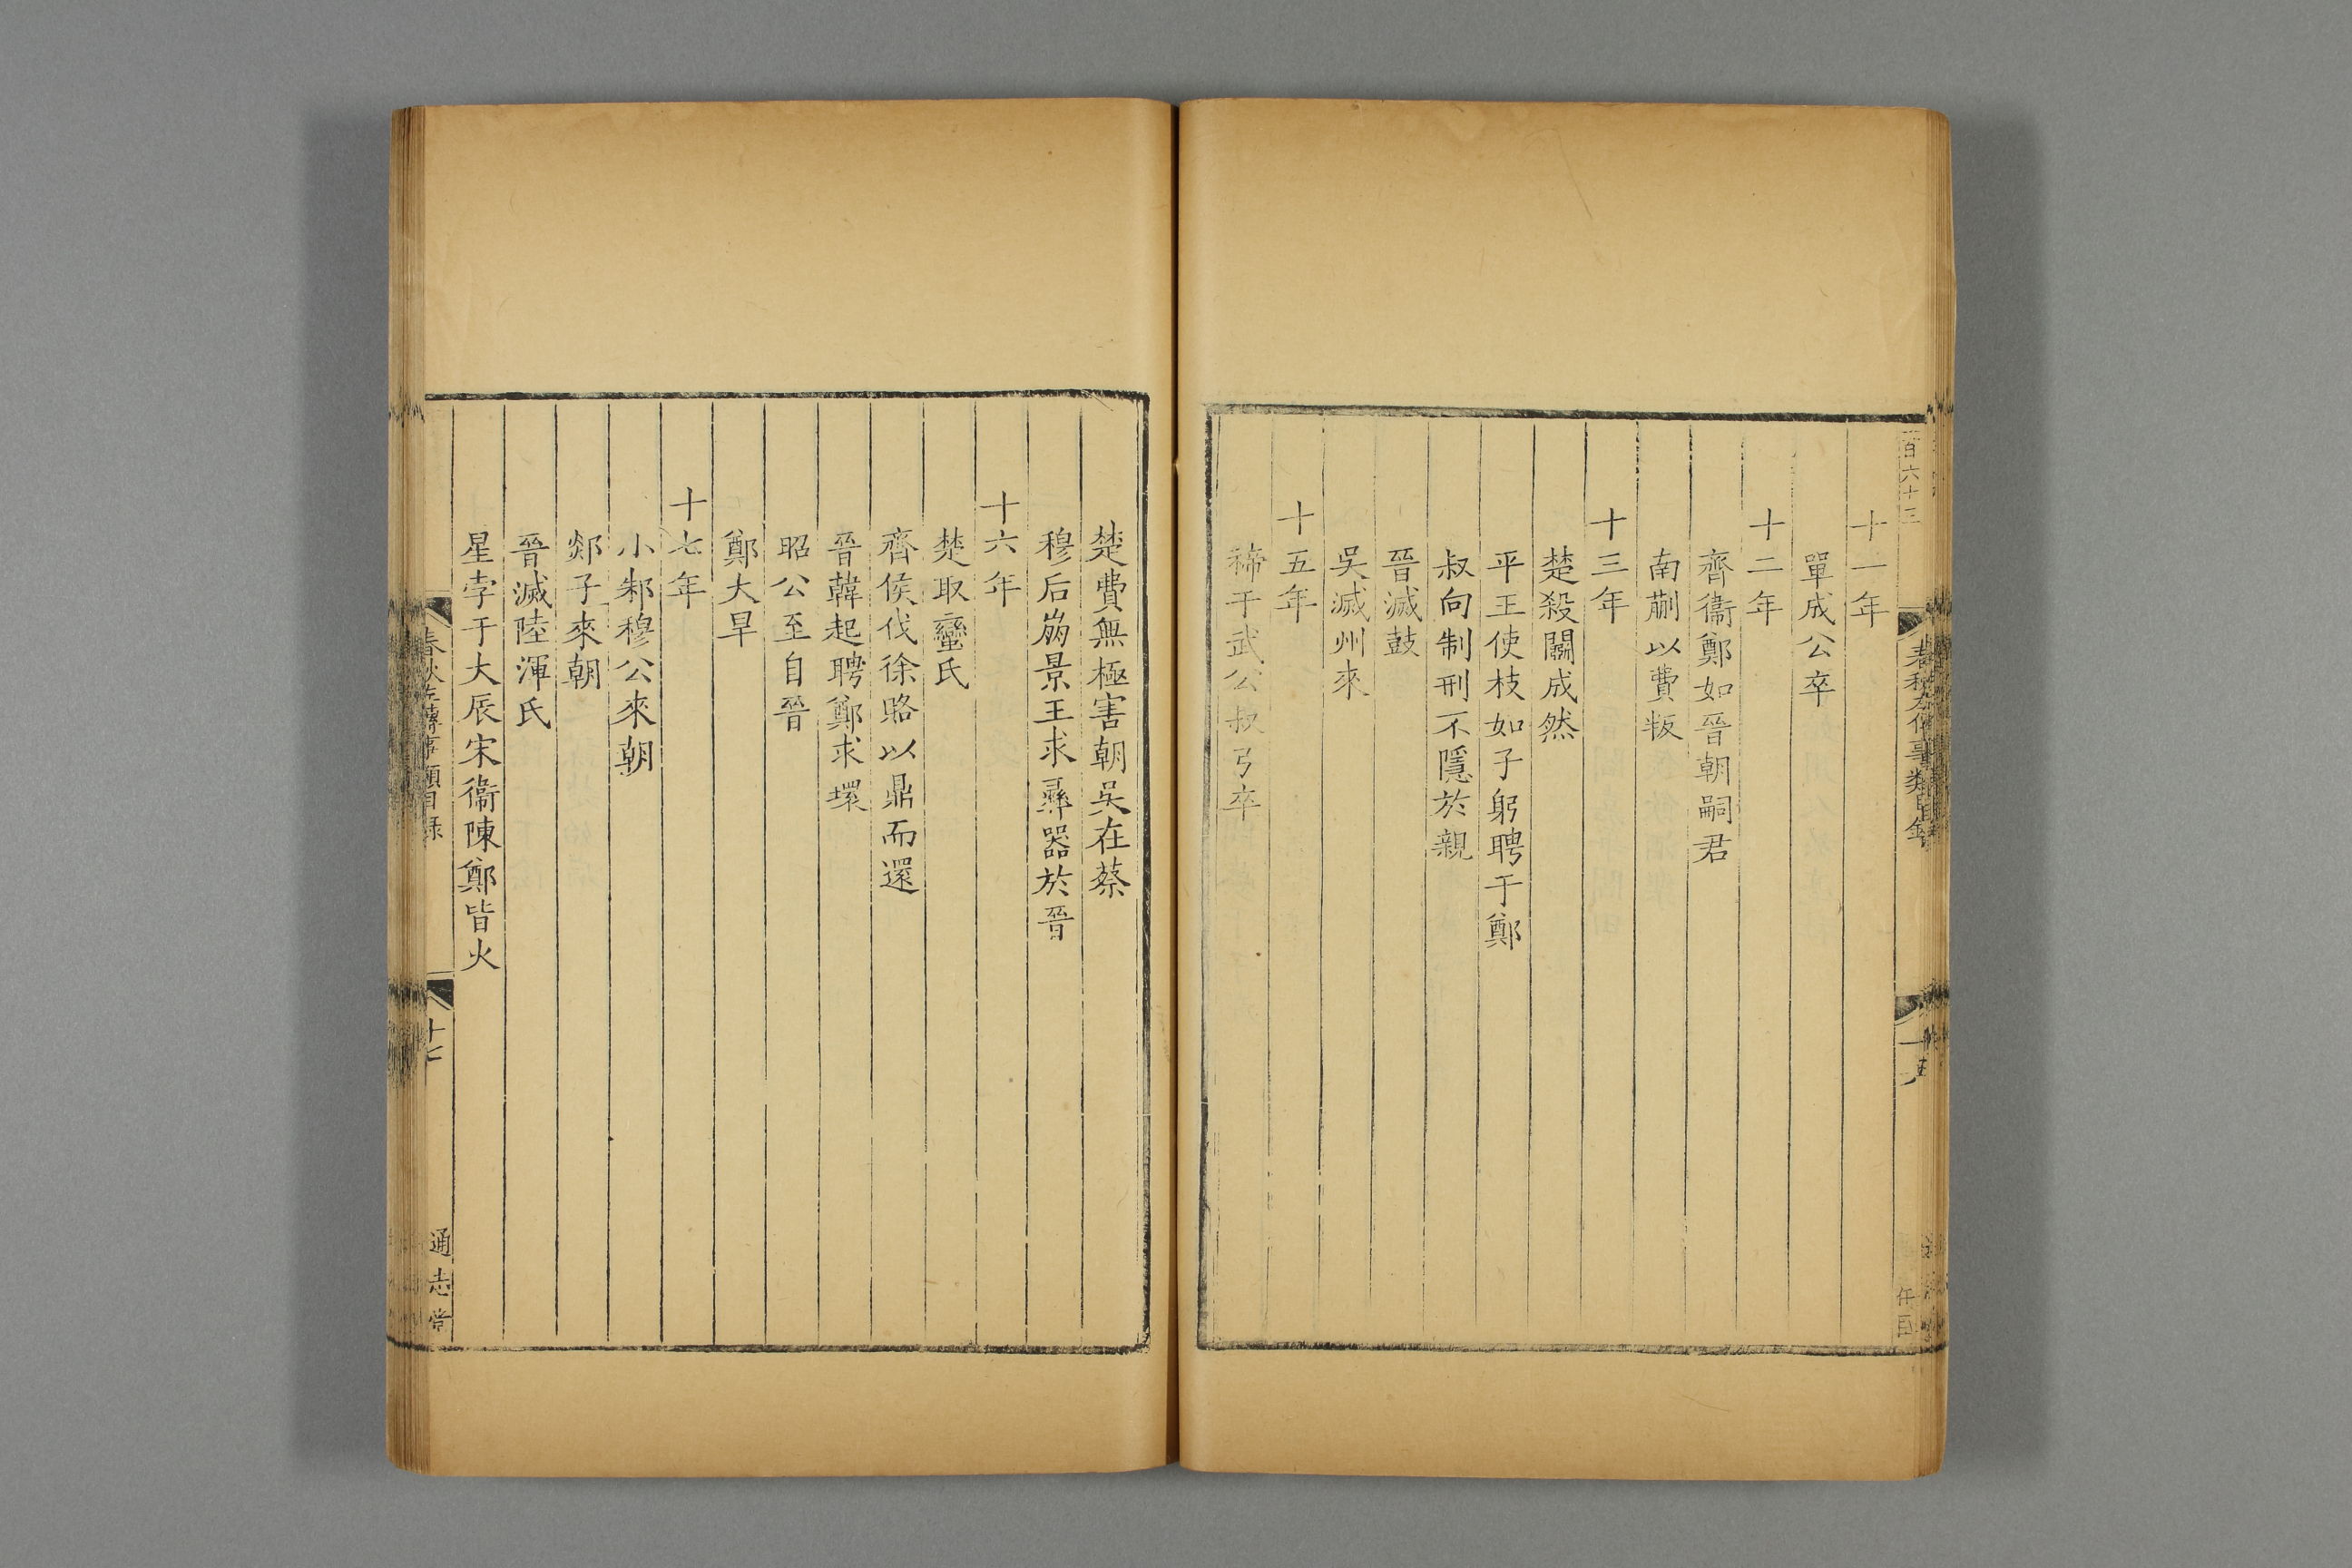 十一年
單成公卒
十二年
齊衞鄭如晉朝嗣君
南蒯以費叛
十三年
楚殺鬬成然
平王使枝如子躬聘于鄭
叔向制刑不隱於親
晉滅鼓
吳滅州來
十五年
禘于武公叔弓卒
楚費無極害朝吳在蔡
穆后崩景王求彞器於晉
十六年
楚取蠻氏
齊侯伐徐賂以鼎而還
晉韓起聘鄭求環
昭公至自晉
鄭大旱
十七年
小邾穆公來朝
郯子來朝
晉滅陸渾氏
星孛于大辰宋衞陳鄭皆火
春秋左傳事類目錄
十七
通志堂